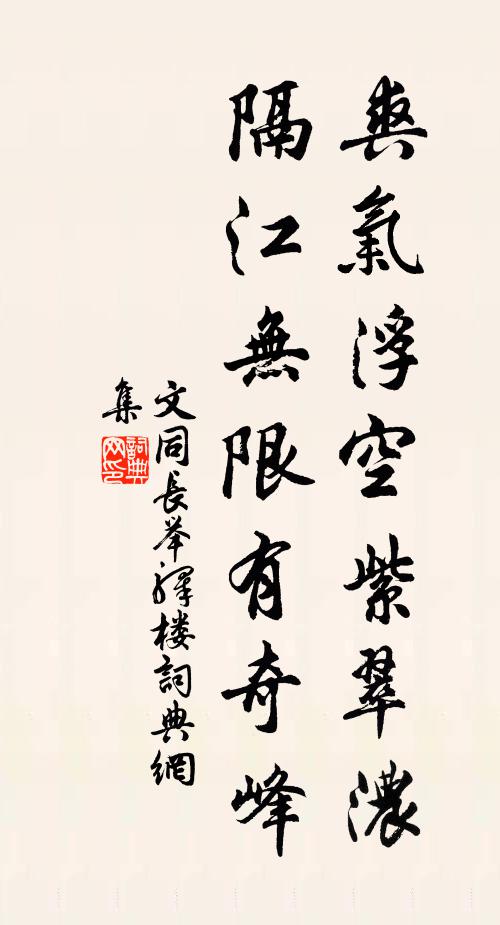 爽氣浮空紫翠濃
隔江無限有奇峰
文同長举驛楼詞典網
集
詞典
网印